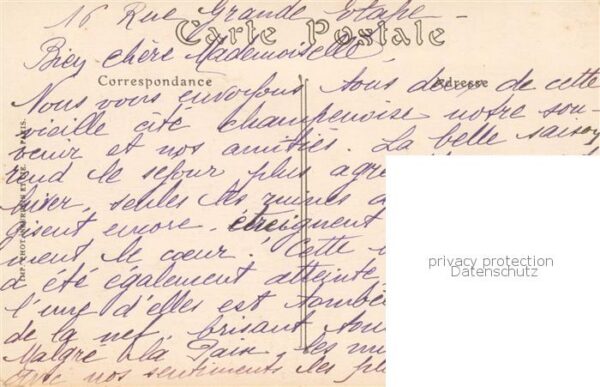 16 Rue Grande Etape
Carte Postale
Bien chère Mademoiselle
Correspondance
Adresse
Nous vous envoyons tous deux de cette
vieille cité champenoise notre sou-
venir et nos amitiés. La belle saison
rend le séjour plus agré
hiver, seules les ruines
gisent encore, étreignent
ment le cœur! Cette
a été également atteinte
l'une d'elles est tombée
de la nef, brisant
Malgré la Paix, les
avec nos sentiments les pl
IMP. PHOT. PARIS.
privacy protection
Datenschutz